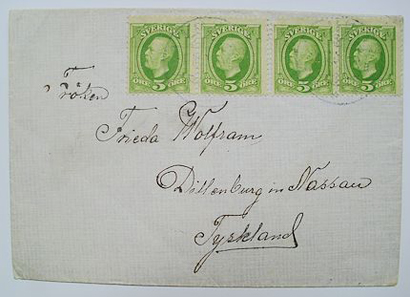 SVERIGE SVERIGE SVERIGE SVERIGE
ÖRE 5 ÖRE ÖRE 5 ÖRE ÖRE 5 ÖRE ÖRE 5 ÖRE
Fröken
Frieda Wolfram
Dillenburg in Nassau
Tyskland